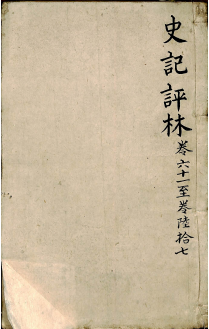 史記評林 卷六十一至卷陸拾七